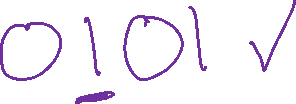 0101 ✓